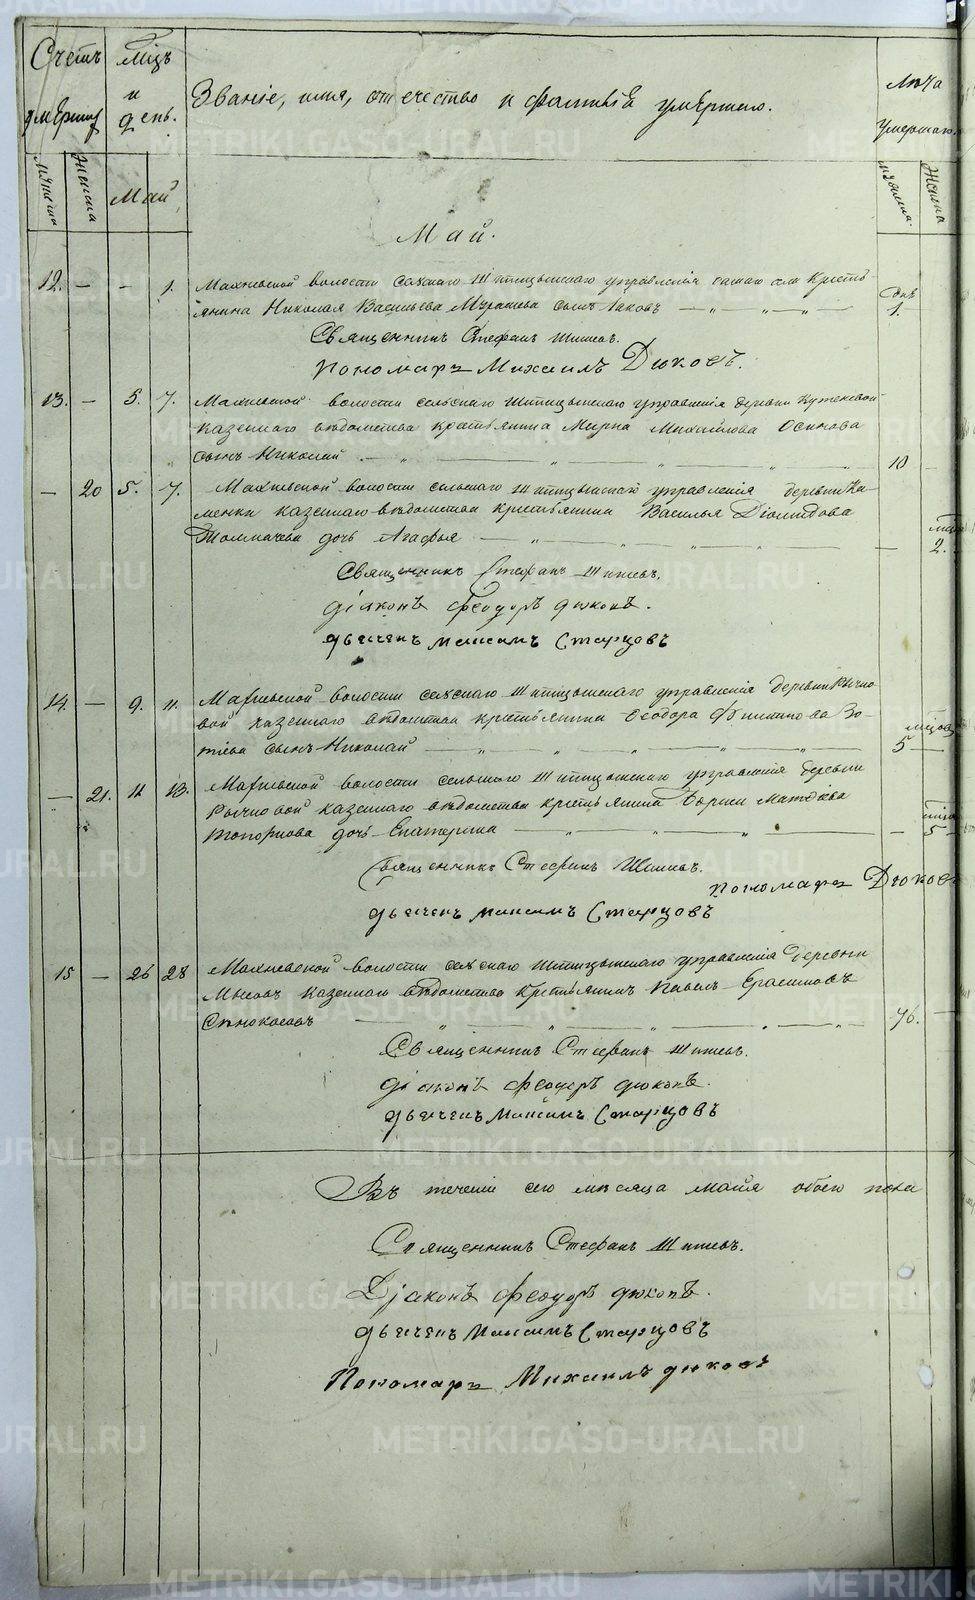 Счетъ умершихъ
Мѣсяцъ и день.
Званіе, имя, отечество и фамилія умершаго.
Лѣта умершаго.
Мужеска Женска Май
Мужеска. Женска
Май.
12. — — 1. Махневской волости сельскаго управленія самаго села кресть-
янина Николая Васильева сынъ Іаковъ — „ — „ — „ — 1.
Священникъ Стефанъ
Пономарь Михаилъ Дюковъ.
13. — 5. 7. Махневской волости сельскаго управленія деревни
казеннаго вѣдомства крестьянина Михайлова Осипова
сынъ Николай — „ — „ — „ — 10
— 20 5. 7. Махневской волости сельскаго управленія деревни Ка-
менки казеннаго вѣдомства крестьянина Василья
Толмачева дочь Агафья — „ — „ — „ — 2.
Священникъ Стефанъ
Діаконъ Феодоръ Дюковъ.
Дьячекъ Максимъ Старцовъ
14. — 9. 11. Махневской волости сельскаго управленія деревни Рычко-
вой казеннаго вѣдомства крестьянина Ѳеодора Филиппова Зо-
тѣева сынъ Николай — „ — „ — „ — 5
— 21. 11 13. Махневской волости сельскаго управленія деревни
Рычковой казеннаго вѣдомства крестьянина Бориса Матѳѣева
Топоркова дочь Екатерина — „ — „ — 5
Священникъ Стефанъ
Пономарь Дюковъ
Дьячекъ Максимъ Старцовъ
15 — 26 28 Махневской волости сельскаго управленія деревни
казеннаго вѣдомства крестьянинъ Павелъ Ерасимовъ
— „ — „ — „ — 76. —
Священникъ Стефанъ
Діаконъ Феодоръ Дюковъ.
Дьячекъ Максимъ Старцовъ
Въ теченіе сего мѣсяца Майя обоего пола
Священникъ Стефанъ
Діаконъ Феодоръ Дюковъ.
Дьячекъ Максимъ Старцовъ
Пономарь Михаилъ Дюковъ
METRIKI.GASO-URAL.RU